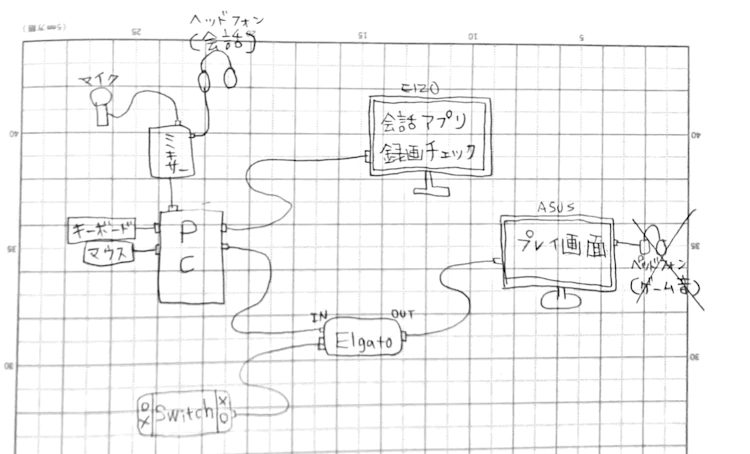 (5mm方眼)
25
20
15
10
5
ヘッドフォン
(会話)
マイク
ミキサー
40
40
EIZO
会話アプリ
録画チェック
キーボード
マウス
PC
35
35
ASUS
プレイ画面
ヘッドフォン
(ゲーム音)
IN
OUT
Elgato
30
30
Switch